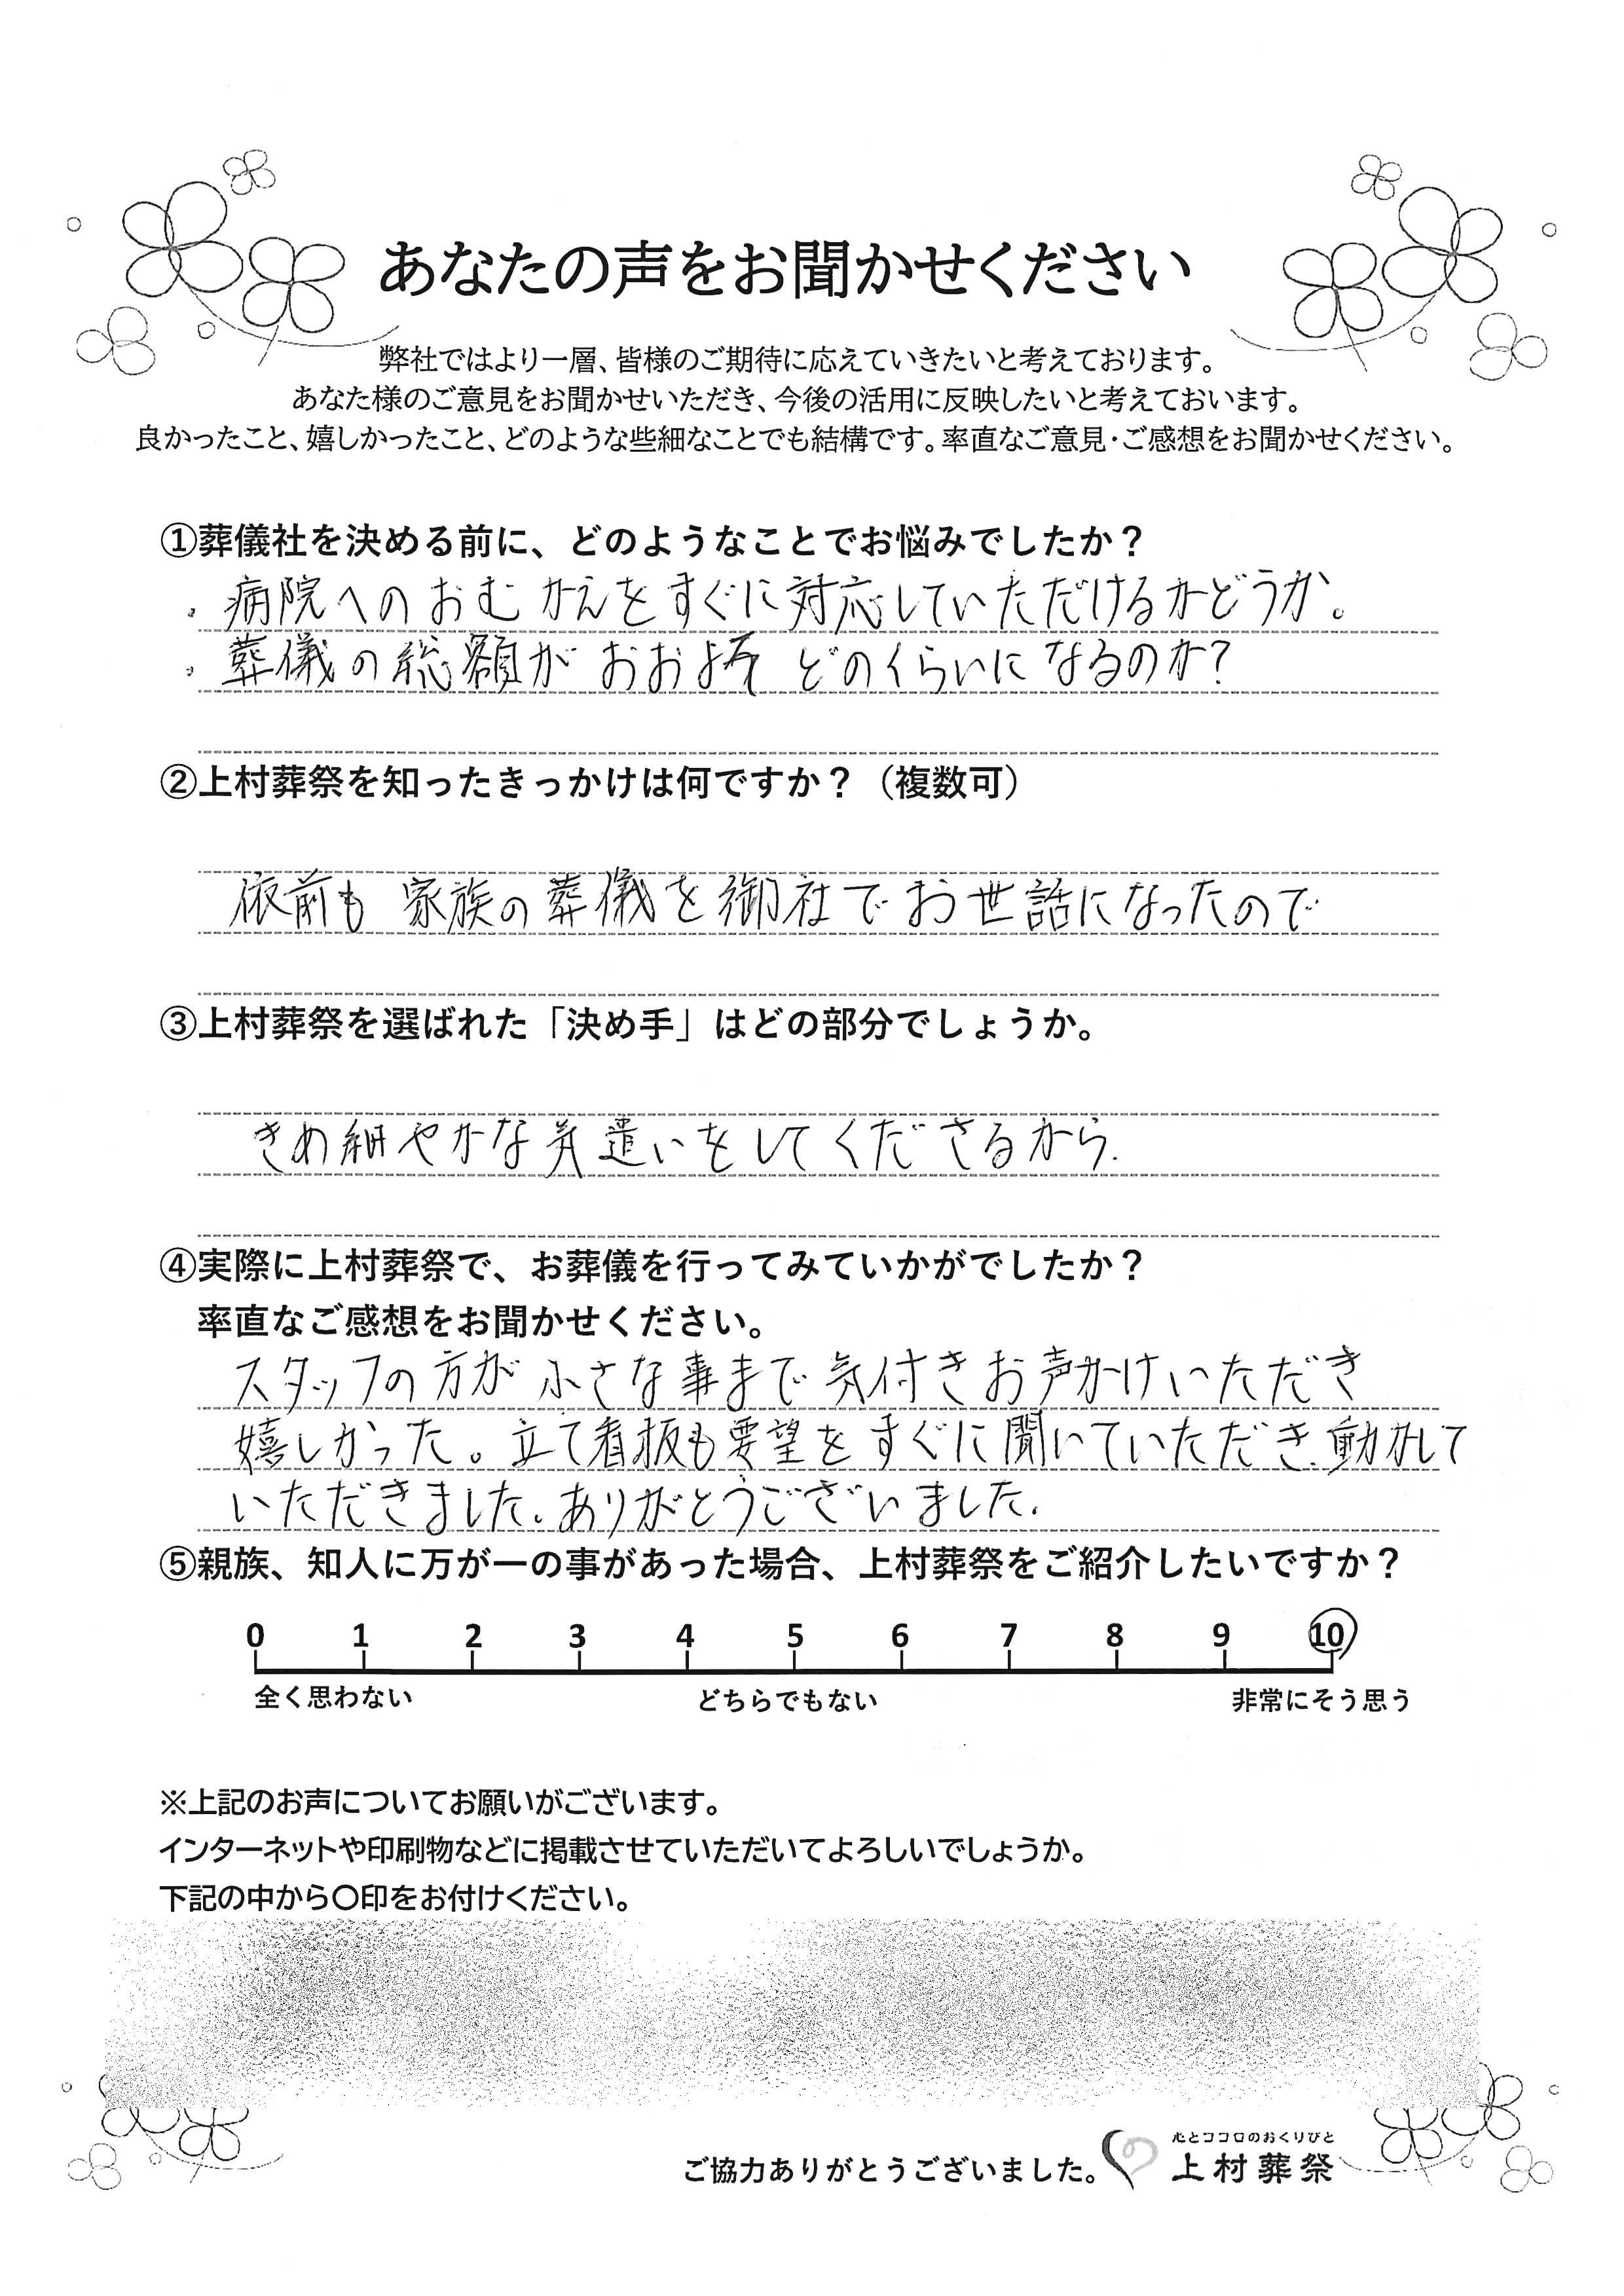 あなたの声をお聞かせください
弊社ではより一層、皆様のご期待に応えていきたいと考えております。
あなた様のご意見をお聞かせいただき、今後の活用に反映したいと考えておいます。
良かったこと、嬉しかったこと、どのような些細なことでも結構です。率直なご意見・ご感想をお聞かせください。
①葬儀社を決める前に、どのようなことでお悩みでしたか？
・病院へのおむかえをすぐに対応していただけるかどうか。
・葬儀の総額がおおよそどのくらいになるのか?
②上村葬祭を知ったきっかけは何ですか？（複数可）
依前も家族の葬儀を御社でお世話になったので
③上村葬祭を選ばれた「決め手」はどの部分でしょうか。
きめ細やかな気遣いをしてくださるから.
④実際に上村葬祭で、お葬儀を行ってみていかがでしたか？
率直なご感想をお聞かせください。
スタッフの方が小さな事まで気付きお声かけいただき
嬉しかった。立て看板も要望をすぐに聞いていただき、動かして
いただきました。ありがとうございました.
⑤親族、知人に万が一の事があった場合、上村葬祭をご紹介したいですか？
0 1 2 3 4 5 6 7 8 9 10
全く思わない どちらでもない 非常にそう思う
※上記のお声についてお願いがございます。
インターネットや印刷物などに掲載させていただいてよろしいでしょうか。
下記の中から〇印をお付けください。
心とココロのおくりびと
ご協力ありがとうございました。 上村葬祭